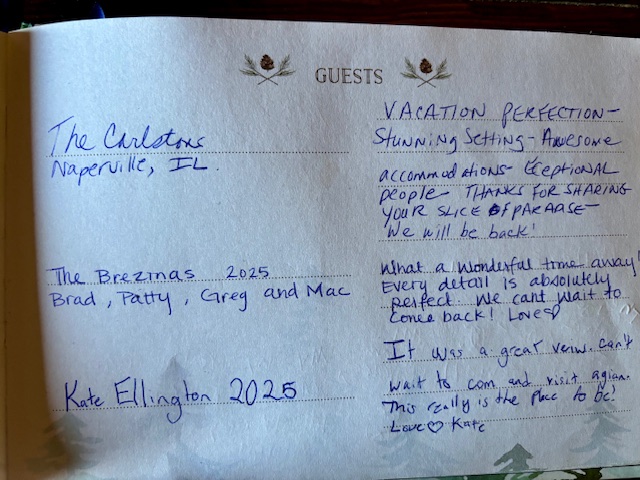 GUESTS
The Carlstons
Naperville, IL.
VACATION PERFECTION-
Stunning Setting - Awesome
accommodations - Eceptional
people - THANKS FOR SHARING
YOUR SLICE OF PARADASE -
We will be back!
The Brezinas 2025
Brad, Patty, Greg and Mac
What a wonderful time away!
Every detail is absolutely
perfect. We cant wait to
come back! Love♡
Kate Ellington 2025
It was a great veiw. can't
wait to com and visit agian.
This really is the place to be!
Love ♡ Kate